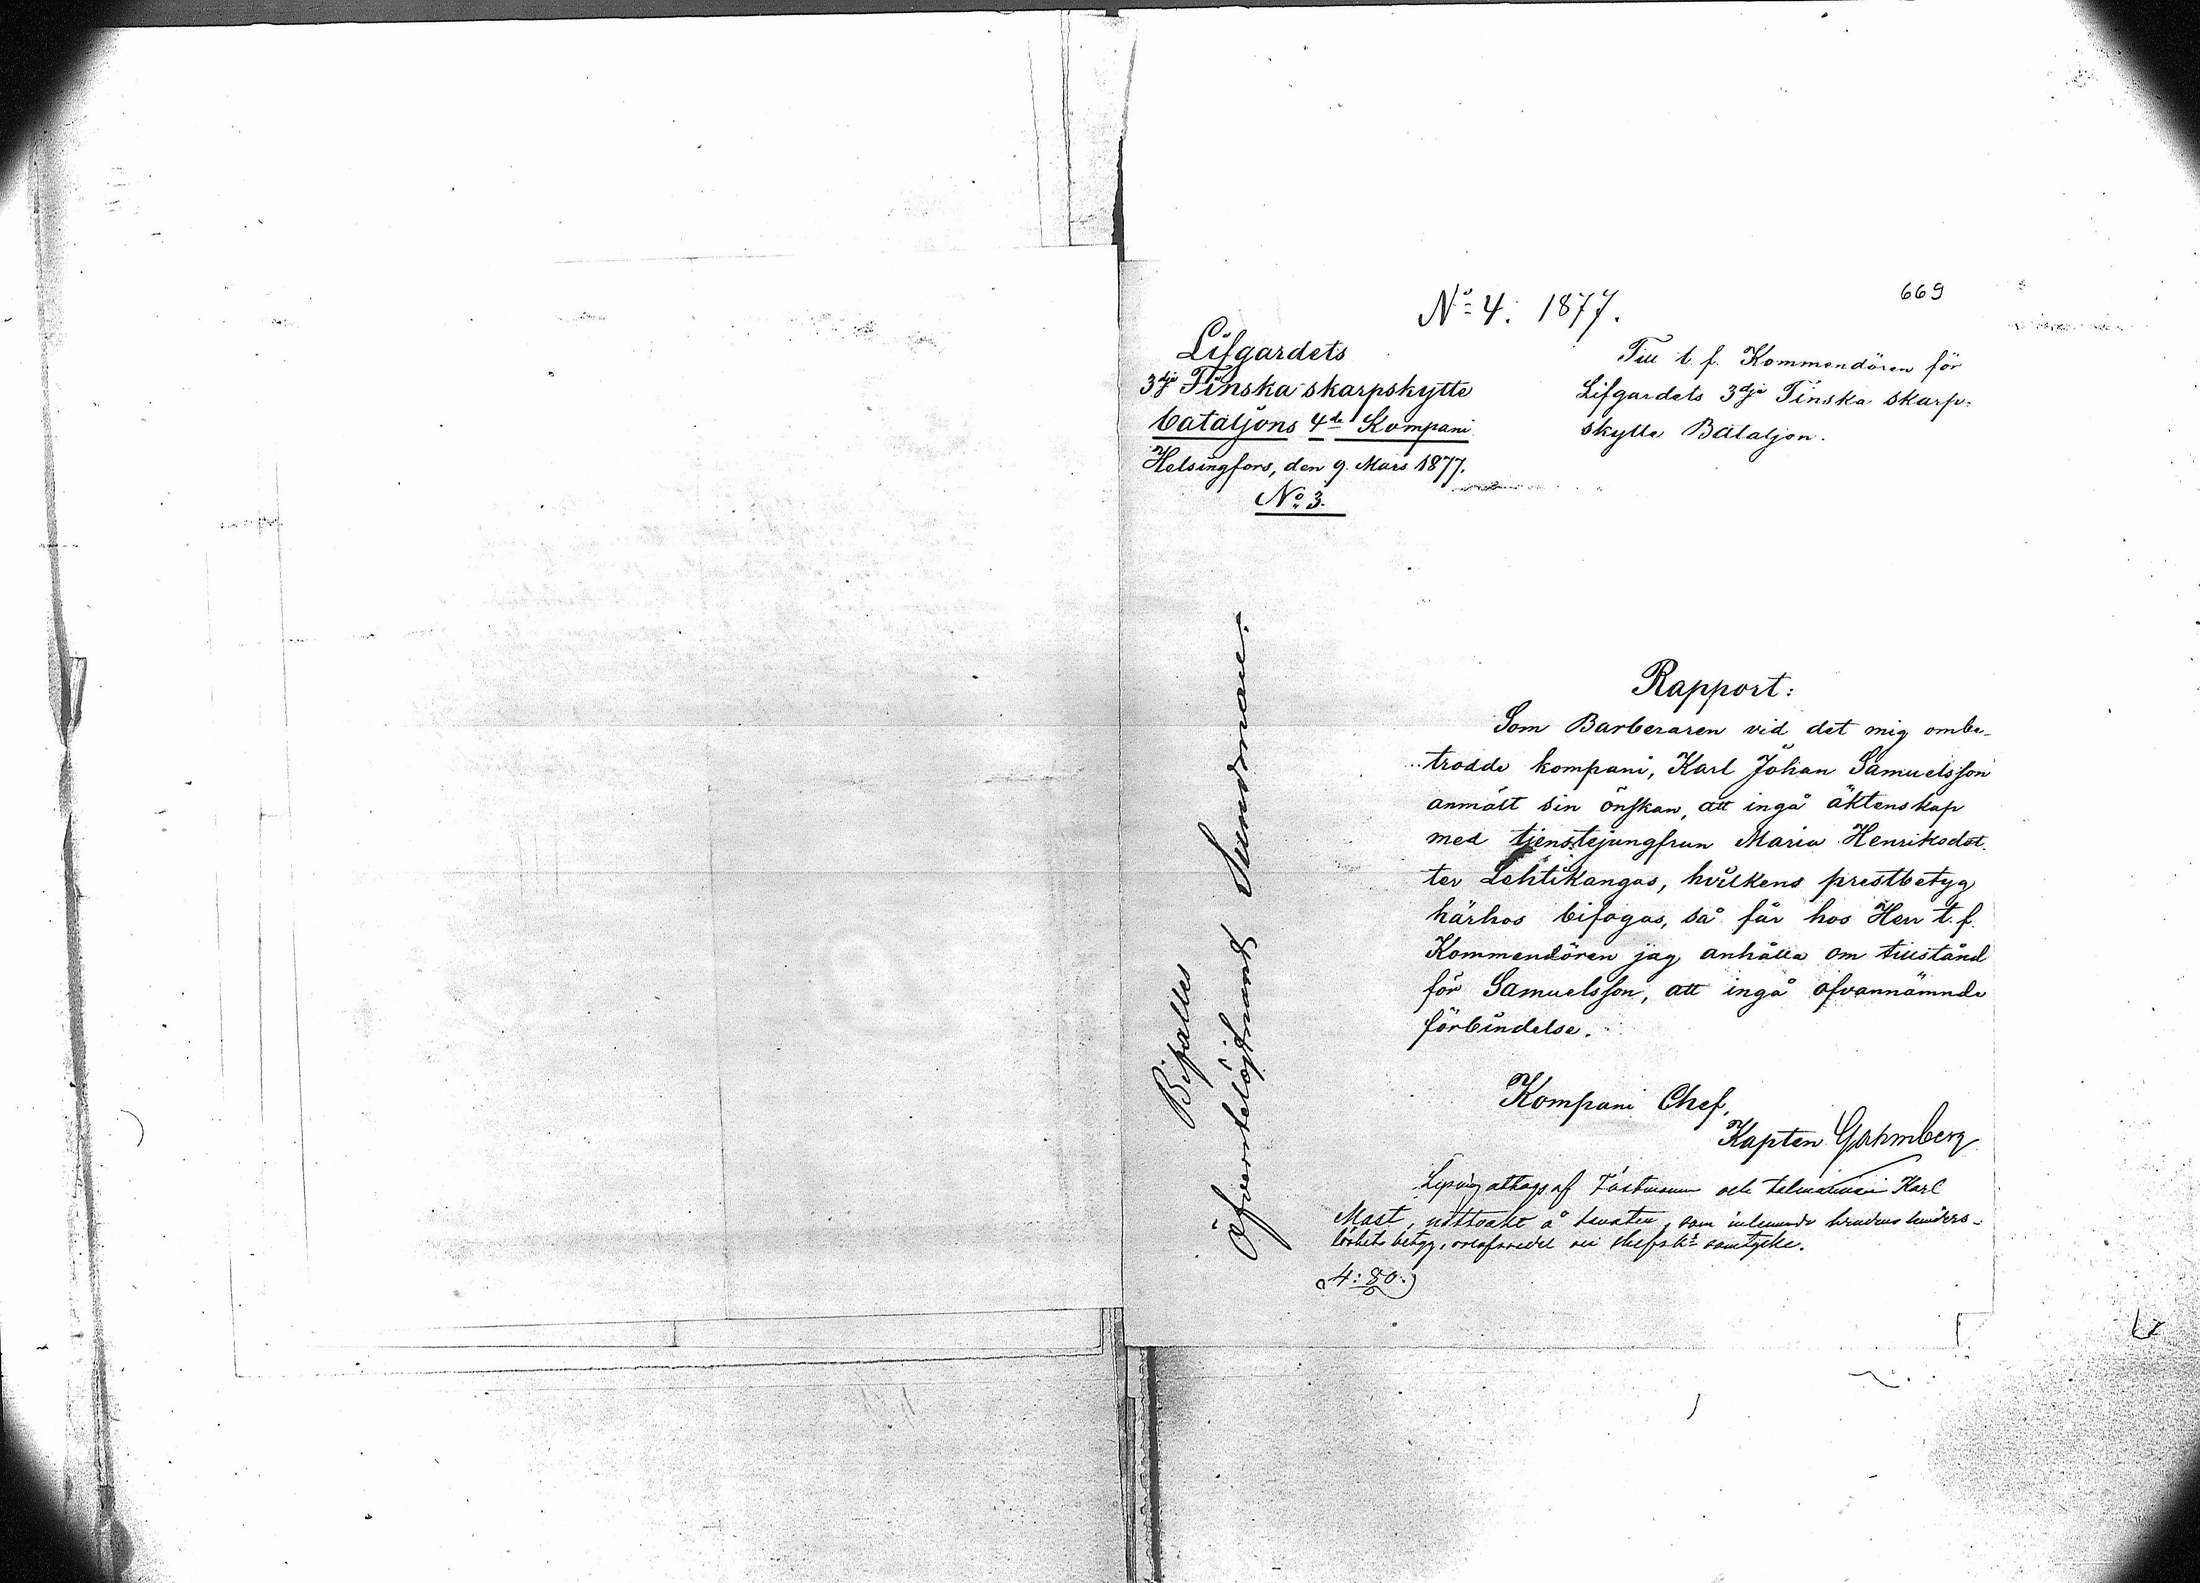 669
No 4. 1877.
Lifgardets
3dje Finska skarpskytte
bataljons 4de Kompani
Helsingfors, den 9. Mars 1877.
No 3.
Till t. f. Kommendören för
Lifgardets 3dje Finska skarp-
skytte Bataljon.
Rapport:
Som Barberaren vid det mig ombe-
trodde kompani, Karl Johan Samuelsson
anmält sin önskan, att ingå äktenskap
med tjenstejungfrun Maria Henriksdot-
ter Lehtikangas, hvilkens prestbetyg
härhos bifogas, så får hos Herr t. f.
Kommendören jag anhålla om tillstånd
för Samuelsson, att ingå ofvannämnde
förbindelse.
Kompani Chef,
Kapten
Bifalles
Öfverstelöjtnant Sundman.
Lysning af och Karl
Mast, å som brudens hinders-
löshets betyg, samtycke.
4:80.